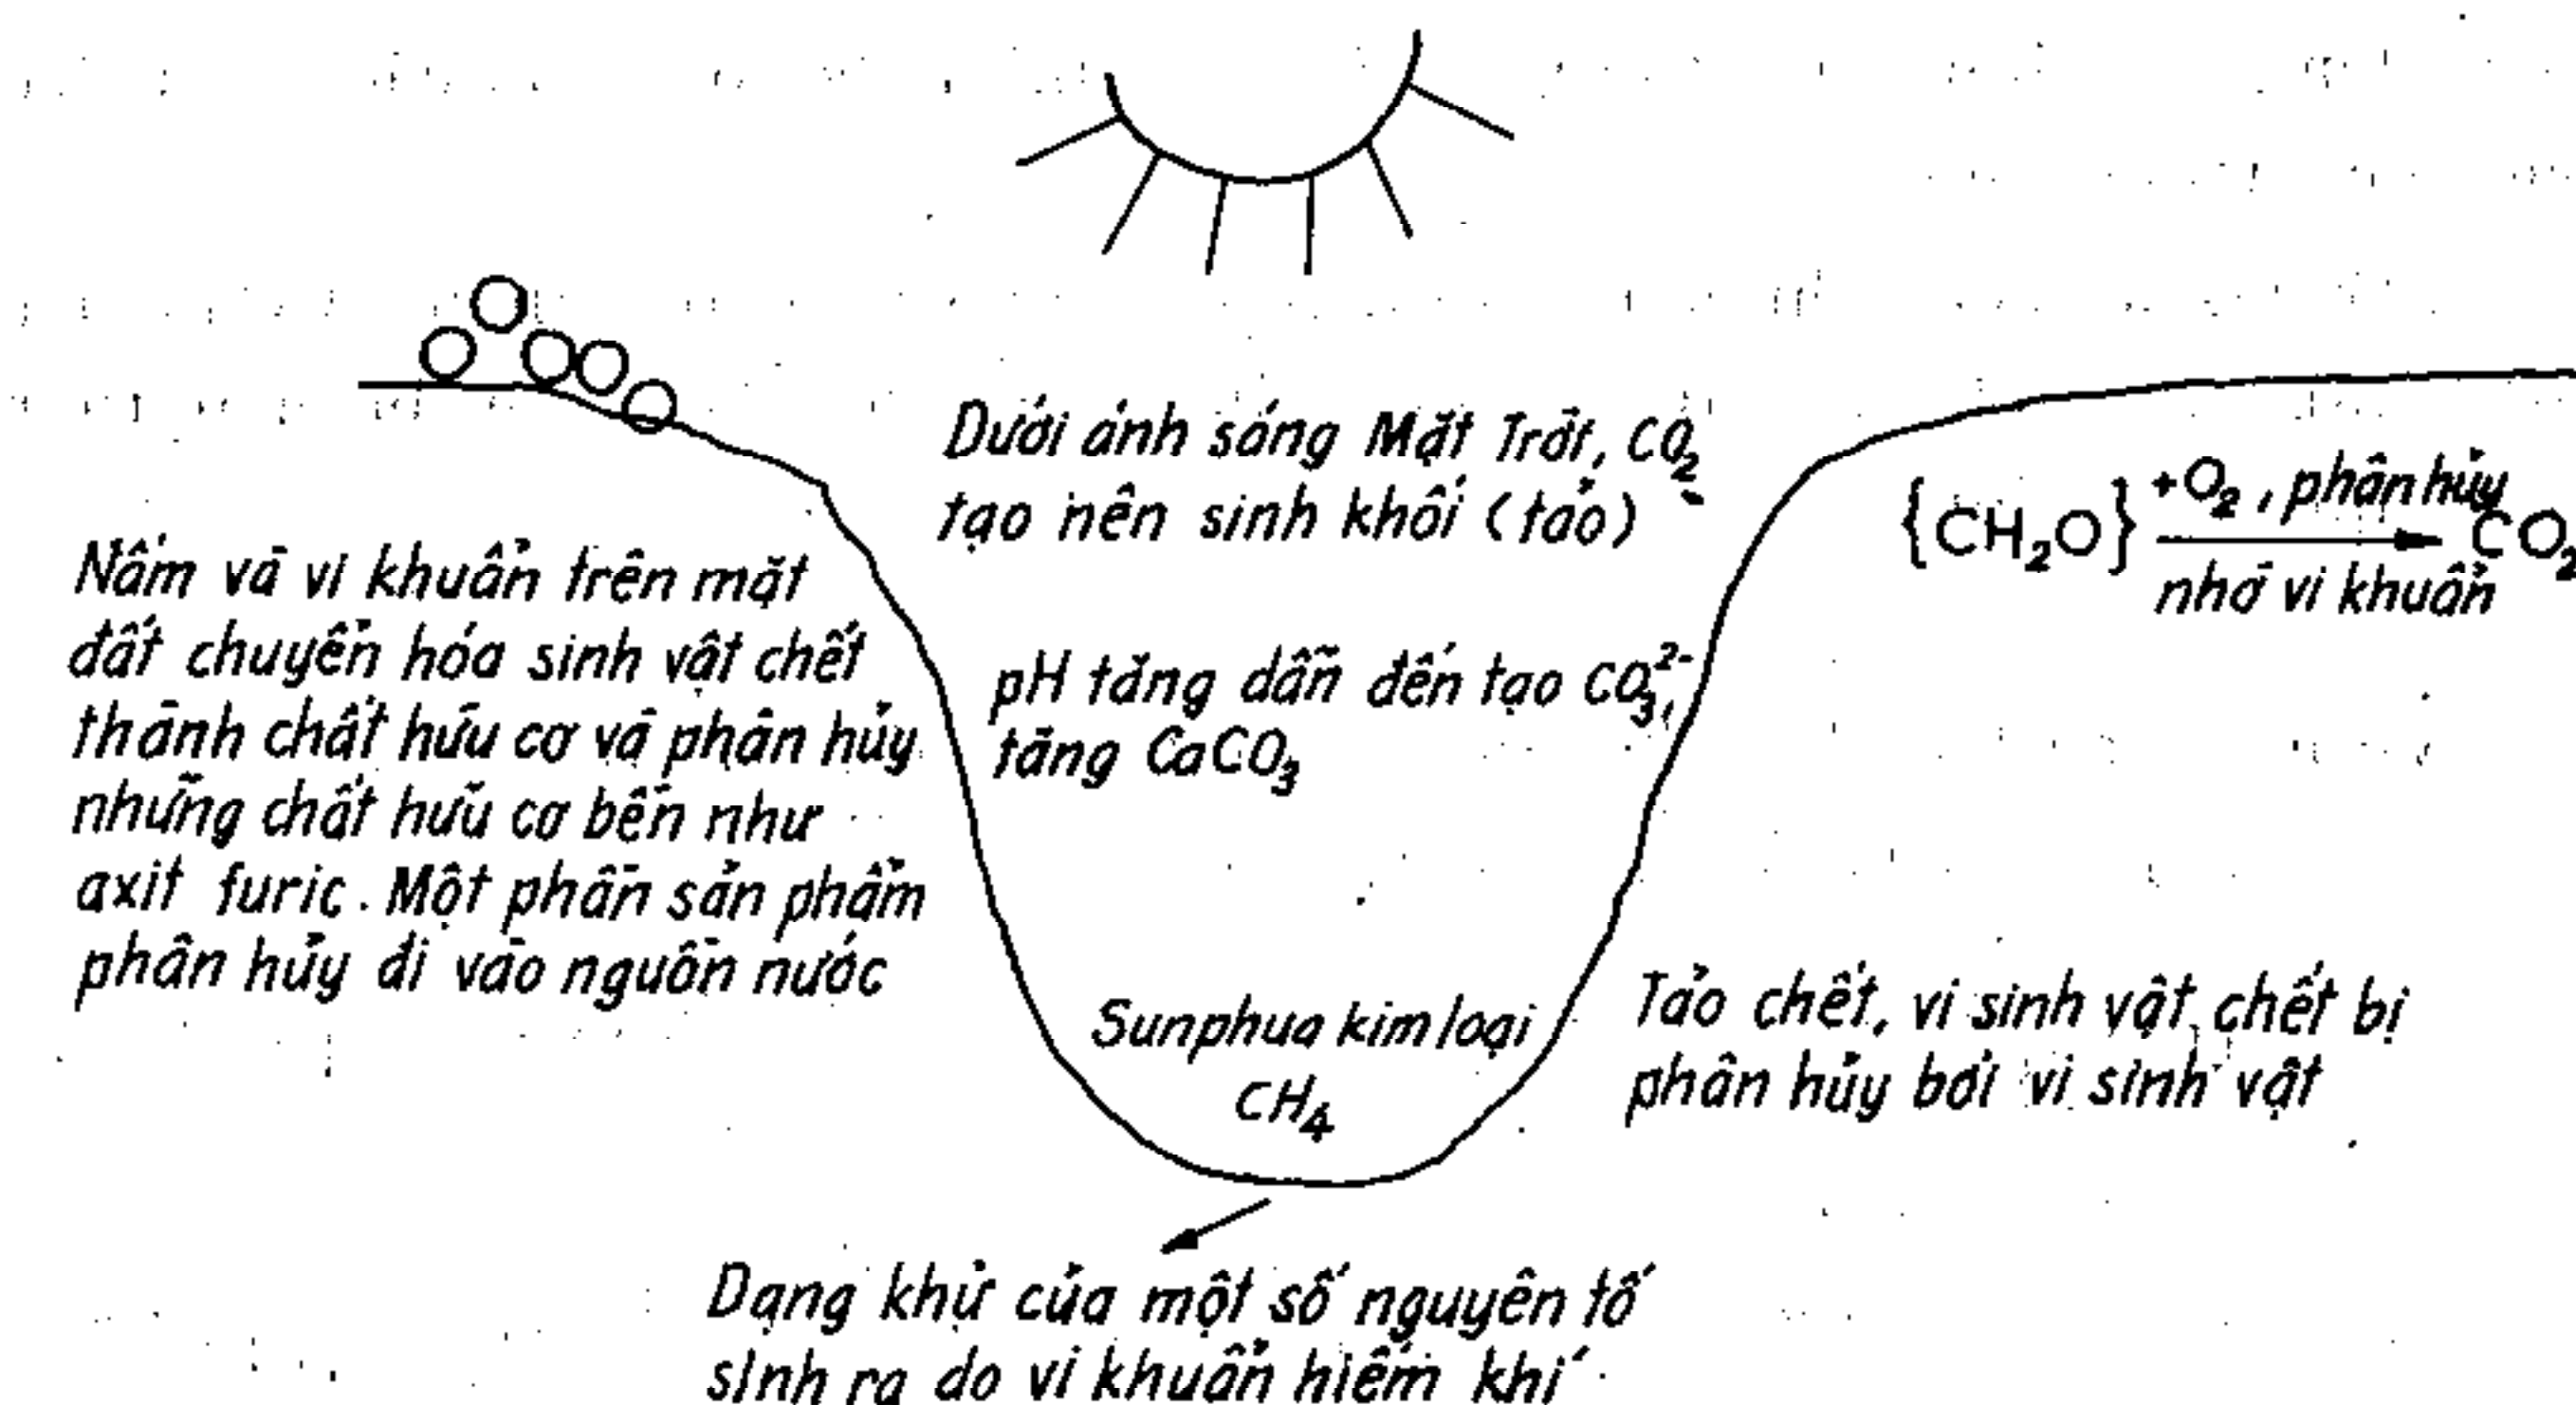 Dưới ánh sáng Mặt Trời, CO₂
tạo nên sinh khối (tảo)
{CH₂O} +O₂, phân hủy CO₂
nhờ vi khuẩn
Nấm và vi khuẩn trên mặt
đất chuyển hóa sinh vật chết
thành chất hữu cơ và phân hủy
những chất hữu cơ bền như
axit furic. Một phần sản phẩm
phân hủy đi vào nguồn nước
pH tăng dẫn đến tạo CO₃²⁻,
tăng CaCO₃
Sunphua kim loại
CH₄
Tảo chết, vi sinh vật chết bị
phân hủy bởi vi sinh vật
Dạng khử của một số nguyên tố
sinh ra do vi khuẩn hiếm khí